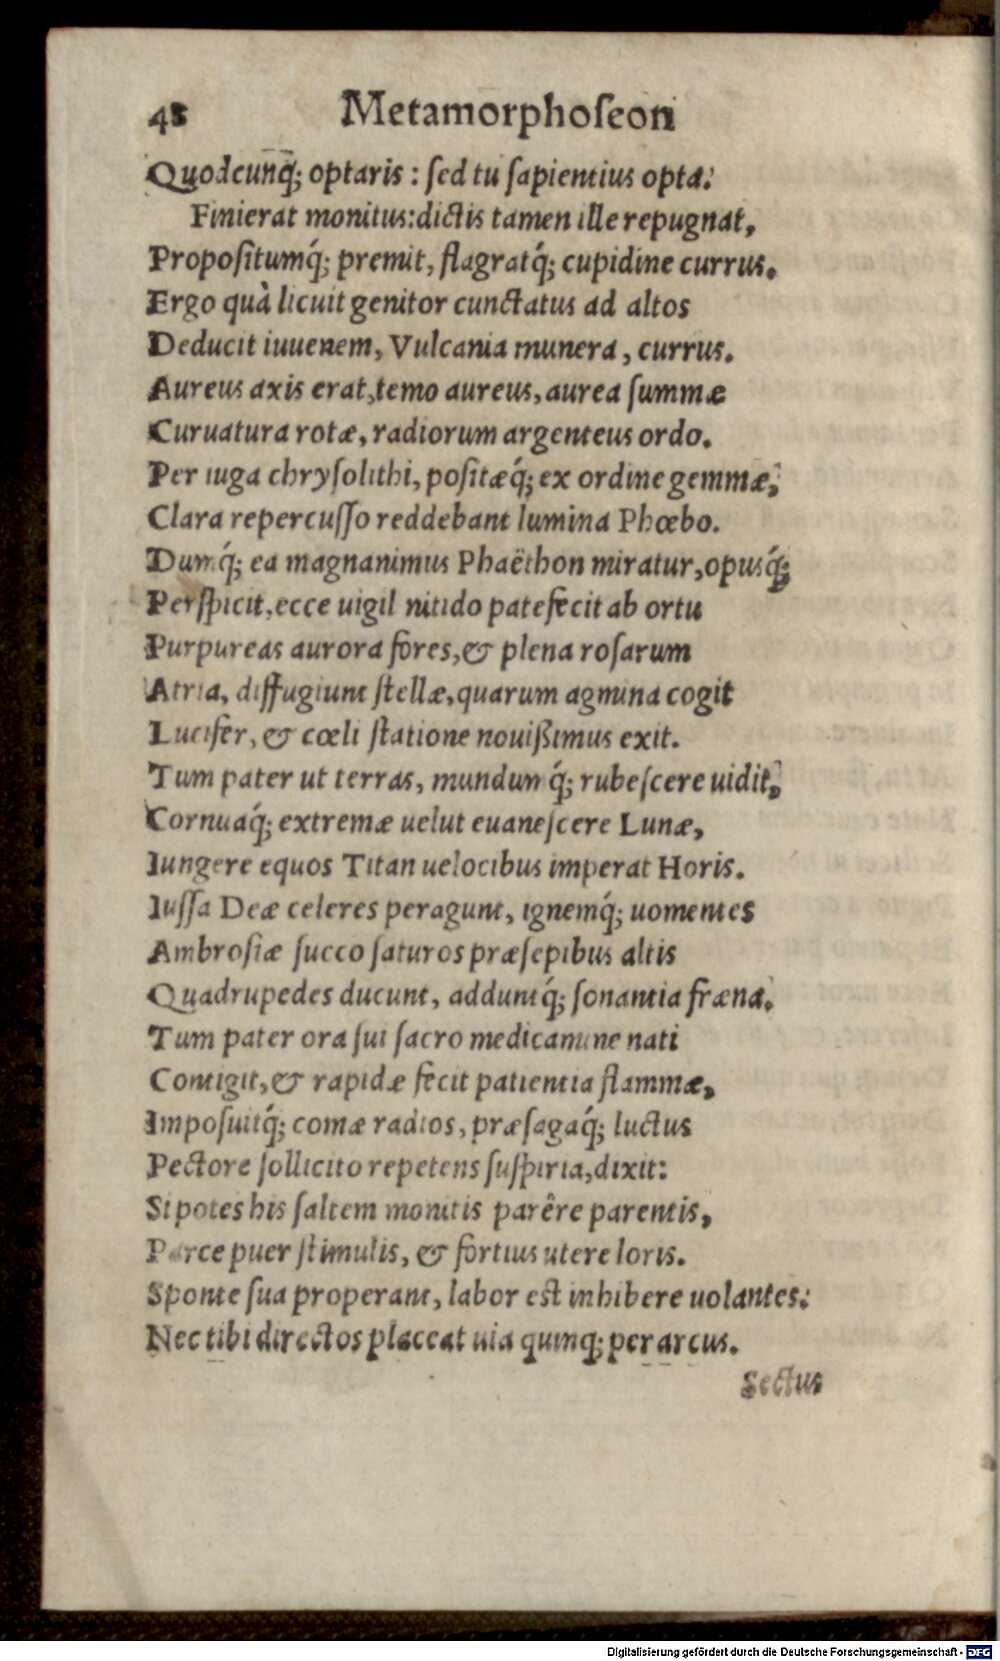 48 Metamorphoseon
Quodcunq́; optaris : sed tu sapientius opta.
Finierat monitus: dictis tamen ille repugnat,
Propositumq́; premit, flagratq́; cupidine currus.
Ergo quà licuit genitor cunctatus ad altos
Deducit iuuenem, Vulcania munera, currus.
Aureus axis erat, temo aureus, aurea summæ
Curuatura rotæ, radiorum argenteus ordo.
Per iuga chrysolithi, positæq́; ex ordine gemmæ,
Clara repercusso reddebant lumina Phœbo.
Dumq́; ea magnanimus Phaëthon miratur, opusq́;
Perspicit, ecce uigil nitido patefecit ab ortu
Purpureas aurora fores, & plena rosarum
Atria, diffugiunt stellæ, quarum agmina cogit
Lucifer, & cœli statione nouißimus exit.
Tum pater ut terras, mundumq́; rubescere uidit,
Cornuaq́; extremæ uelut euanescere Lunæ,
Iungere equos Titan uelocibus imperat Horis.
Iussa Deæ celeres peragunt, ignemq́; uomentes
Ambrosiæ succo saturos præsepibus altis
Quadrupedes ducunt, adduntq́; sonantia fræna.
Tum pater ora sui sacro medicamine nati
Contigit, & rapidæ fecit patientia flammæ,
Imposuitq́; comæ radios, præsagaq́; luctus
Pectore sollicito repetens suspiria, dixit:
Si potes his saltem monitis parêre parentis,
Parce puer stimulis, & fortius utere loris.
Sponte sua properant, labor est inhibere uolantes:
Nec tibi directos placeat uia quinq; per arcus.
Sectus
Digitalisierung gefördert durch die Deutsche Forschungsgemeinschaft - DFG